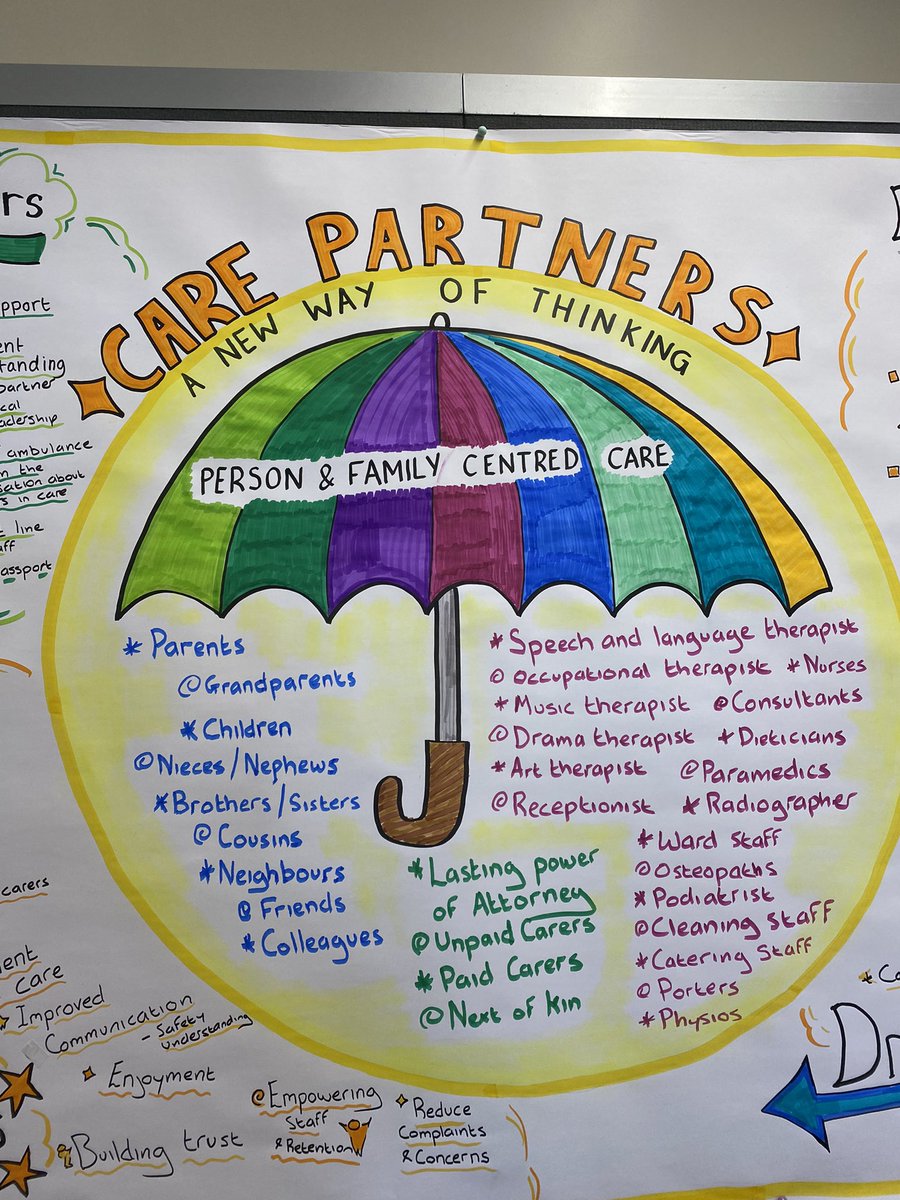 rs
CARE PARTNERS
A NEW WAY OF THINKING
PERSON & FAMILY CENTRED CARE
* Parents
@ Grandparents
* Children
@ Nieces/Nephews
* Brothers/Sisters
@ Cousins
* Neighbours
@ Friends
* Colleagues
* Lasting power
of Attorney
@ Unpaid Carers
* Paid Carers
@ Next of Kin
* Speech and language therapist
@ Occupational therapist * Nurses
* Music therapist @ Consultants
@ Drama therapist * Dieticians
* Art therapist @ Paramedics
@ Receptionist * Radiographer
* Ward Staff
@ Osteopaths
* Podiatrist
@ Cleaning Staff
* Catering Staff
@ Porters
* Physios
pport
ent
tanding
partner
cal
adership
ambulance
n the
sation about
s in care
line
ff
assport
carers
ent
care
Improved
Communication
- Safety
understanding
Enjoyment
Building trust
@ Empowering
Staff
& Retention
Reduce
Complaints
& Concerns
Dr